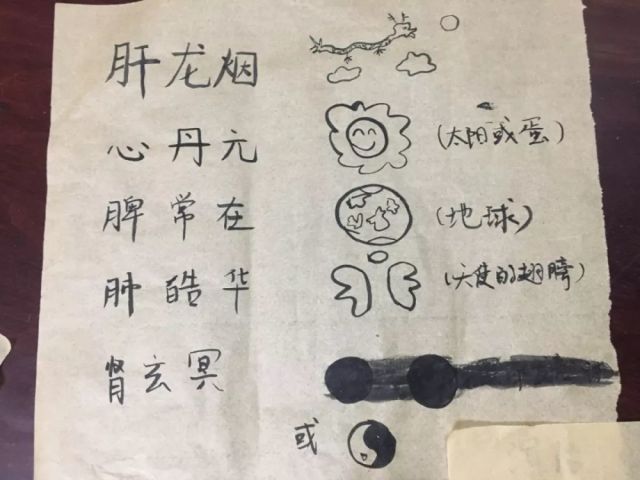 肝龙烟
心丹元 (太阳或蛋)
脾常在 (地球)
肺皓华 (天使的翅膀)
肾玄冥
或